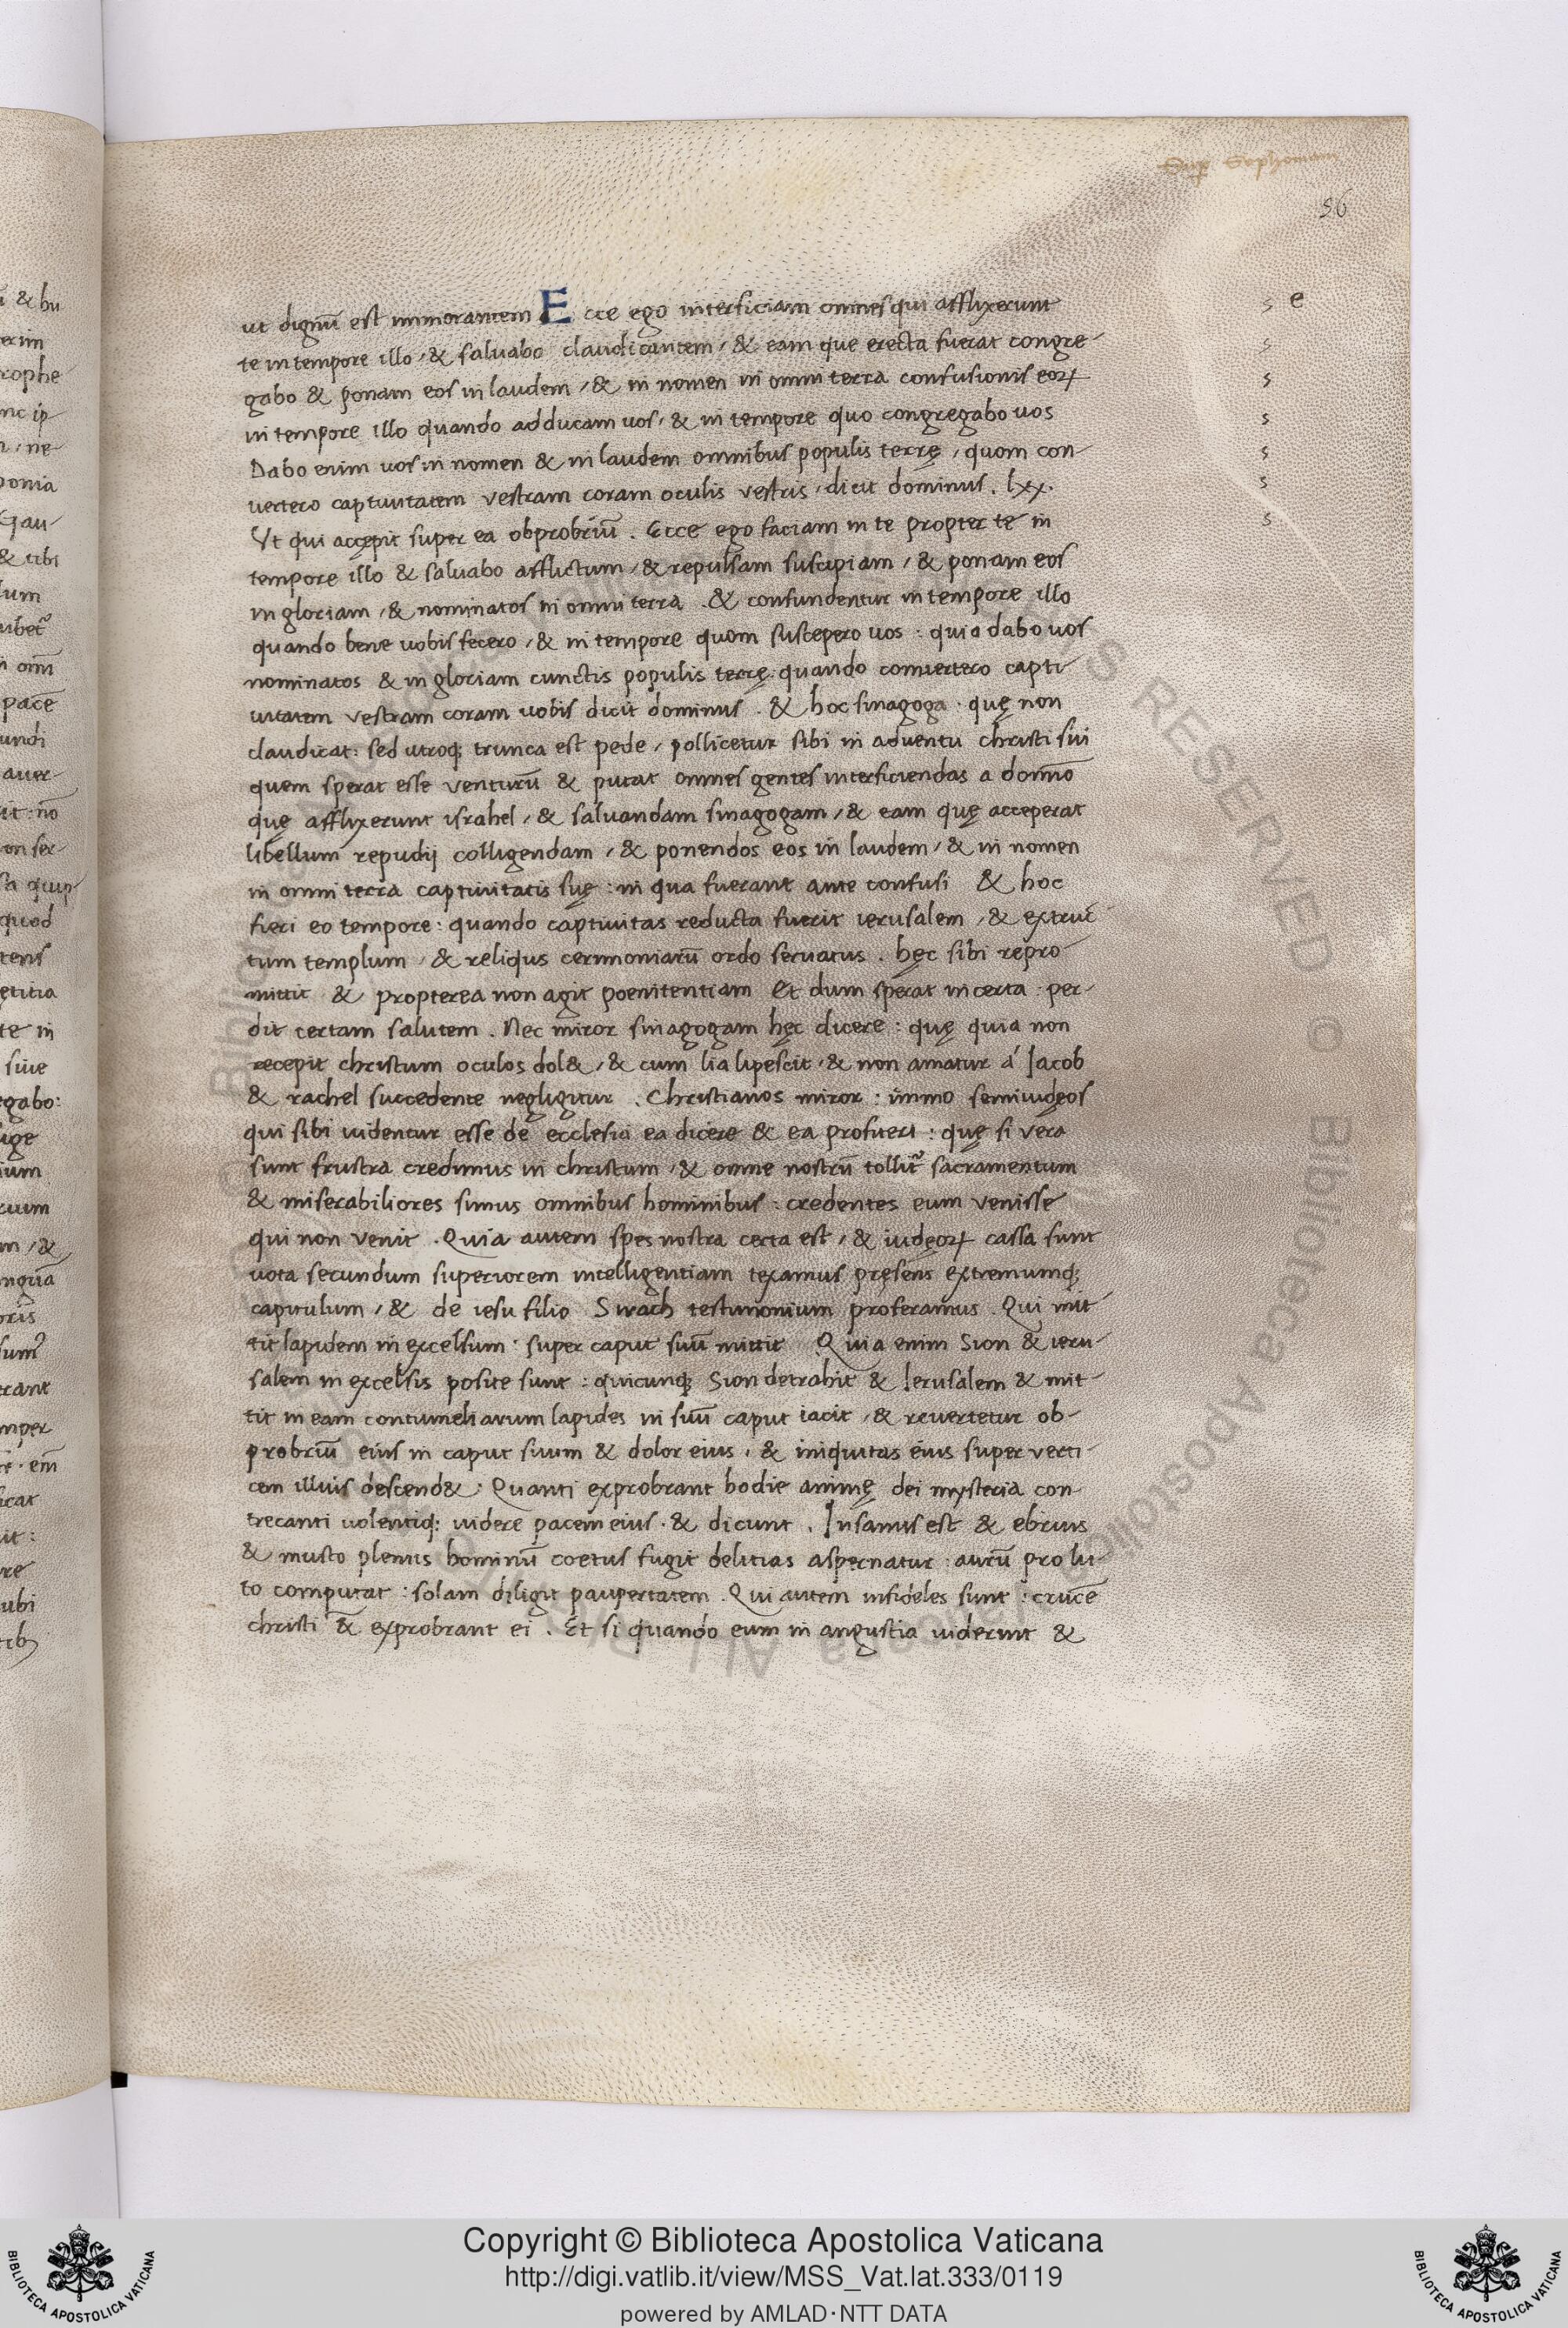 Sup Sophoniam
56
ut dignũ est immorantem Ecce ego interficiam omnes qui afflixerunt
te in tempore illo / & saluabo claudicantem / & eam que erecta fuerat congre-
gabo & ponam eos in laudem / & in nomen in omni terra confusionis eoꝝ
in tempore illo quando adducam uos / & in tempore quo congregabo uos
Dabo enim uos in nomen & in laudem omnibus populis terrę / quom con-
uertero captiuitatem vestram coram oculis vestris / dicit dominus . lxx.
Vt qui accepit super ea obprobriũ . Ecce ego faciam in te propter te in
tempore illo & saluabo afflictum / & repulsam suscipiam / & ponam eos
in gloriam / & nominatos in omni terra . & confundentur in tempore illo
quando bene uobis fecero / & in tempore quom suscepero uos : quia dabo uos
nominatos & in gloriam cunctis populis terrę : quando conuertero capti-
uitatem vestram coram uobis dicit dominus . & hoc sinagoga · quę non
claudicat : sed utroq; trunca est pede / pollicetur sibi in aduentu christi sui
quem sperat esse venturũ & putat omnes gentes interficiendas a domĩo
quę afflixerunt israhel / & saluandam sinagogam / & eam quę acceperat
libellum repudij colligendam / & ponendos eos in laudem / & in nomen
in omni terra captiuitatis suę : in qua fuerant ante confusi & hoc
fieri eo tempore : quando captiuitas reducta fuerit ierusalem / & extruc-
tum templum / & reliqus cerimoniarũ ordo seruatus . hęc sibi repro-
mittit & propterea non agit poenitentiam Et dum sperat incerta : per-
dit certam salutem . Nec miror sinagogam hęc dicere : quę quia non
recepit christum oculos dol& / & cum lia lipescit / & non amatur á Jacob
& rachel succedente negligitur . Christianos miror : immo semiiudęos
qui sibi uidentur esse de ecclesia ea dicere & ea profiteri : quę si vera
sunt frustra credimus in christum / & omne nostrũ tollit᷑ sacramentum
& miserabiliores simus omnibus hominibus : credentes eum venisse
qui non venit . Quia autem spes nostra certa est / & iudęoꝝ cassa sunt
uota secundum superiorem intelligentiam texamus pręsens extremumq;
capitulum / & de iesu filio Sirach testimonium proferamus . Qui mit-
tit lapidem in excelsum · super caput suũ mittit Quia enim Sion & ieru-
salem in excelsis posite sunt : quicunq; Sion detrahit & Ierusalem & mit-
tit in eam contumeliarum lapides in suũ caput iacit / & reuertetur ob-
probriũ eius in caput suum & dolor eius / & iniquitas eius super verti-
cem illius descend& · Quanti exprobrant hodie animę dei mysteria con-
trecanti uolentiq; uidere pacem eius · & dicunt . Insanus est & ebrius
& musto plenus hominũ coetus fugit delitias aspernatur : aurũ pro lu-
to computat : solam diligit paupertatem . Qui autem infideles sunt : crucẽ
christi & exprobrant ei . Et si quando eum in angustia uiderint &
s e
s
s
s
s
s
s
Copyright © Biblioteca Apostolica Vaticana
http://digi.vatlib.it/view/MSS_Vat.lat.333/0119
powered by AMLAD·NTT DATA
BIBLIOTECA APOSTOLICA VATICANA
BIBLIOTECA APOSTOLICA VATICANA